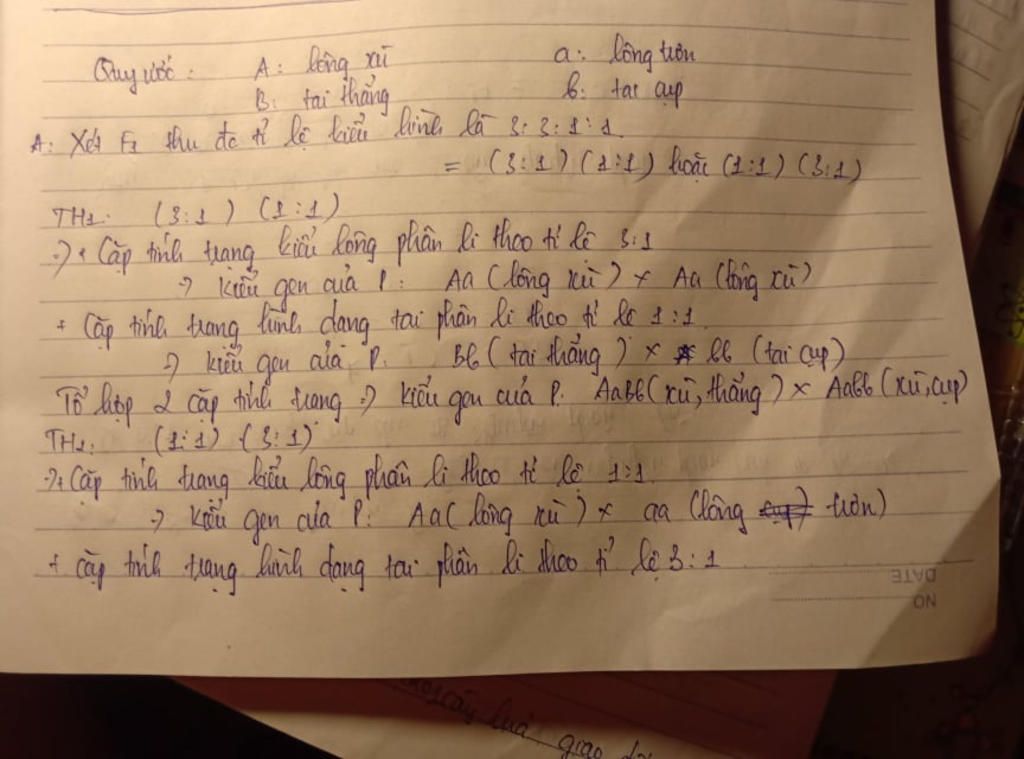 Quy ước: A: lông xù a: lông trơn
B: tai thẳng b: tai cụp
A: Xét F1 thu đc tỉ lệ kiểu hình là 3:3:1:1.
= (3:1) (1:1) hoặc (1:1) (3:1)
TH1: (3:1) (1:1)
=> + Cặp tính trạng kiểu lông phân li theo tỉ lệ 3:1
=> kiểu gen của P: Aa (lông xù) x Aa (lông xù)
+ Cặp tính trạng hình dạng tai phân li theo tỉ lệ 1:1.
=> kiểu gen của P. Bb (tai thẳng) x bb (tai cụp)
Tổ hợp 2 cặp tính trạng => kiểu gen của P: AaBb (xù, thẳng) x Aabb (xù, cụp)
TH2: (1:1) (3:1)
=> + Cặp tính trạng kiểu lông phân li theo tỉ lệ 1:1.
=> kiểu gen của P: Aa (lông xù) x aa (lông trơn)
+ cặp tính trạng hình dạng tai phân li theo tỉ lệ 3:1
DATE
NO
lúa giao